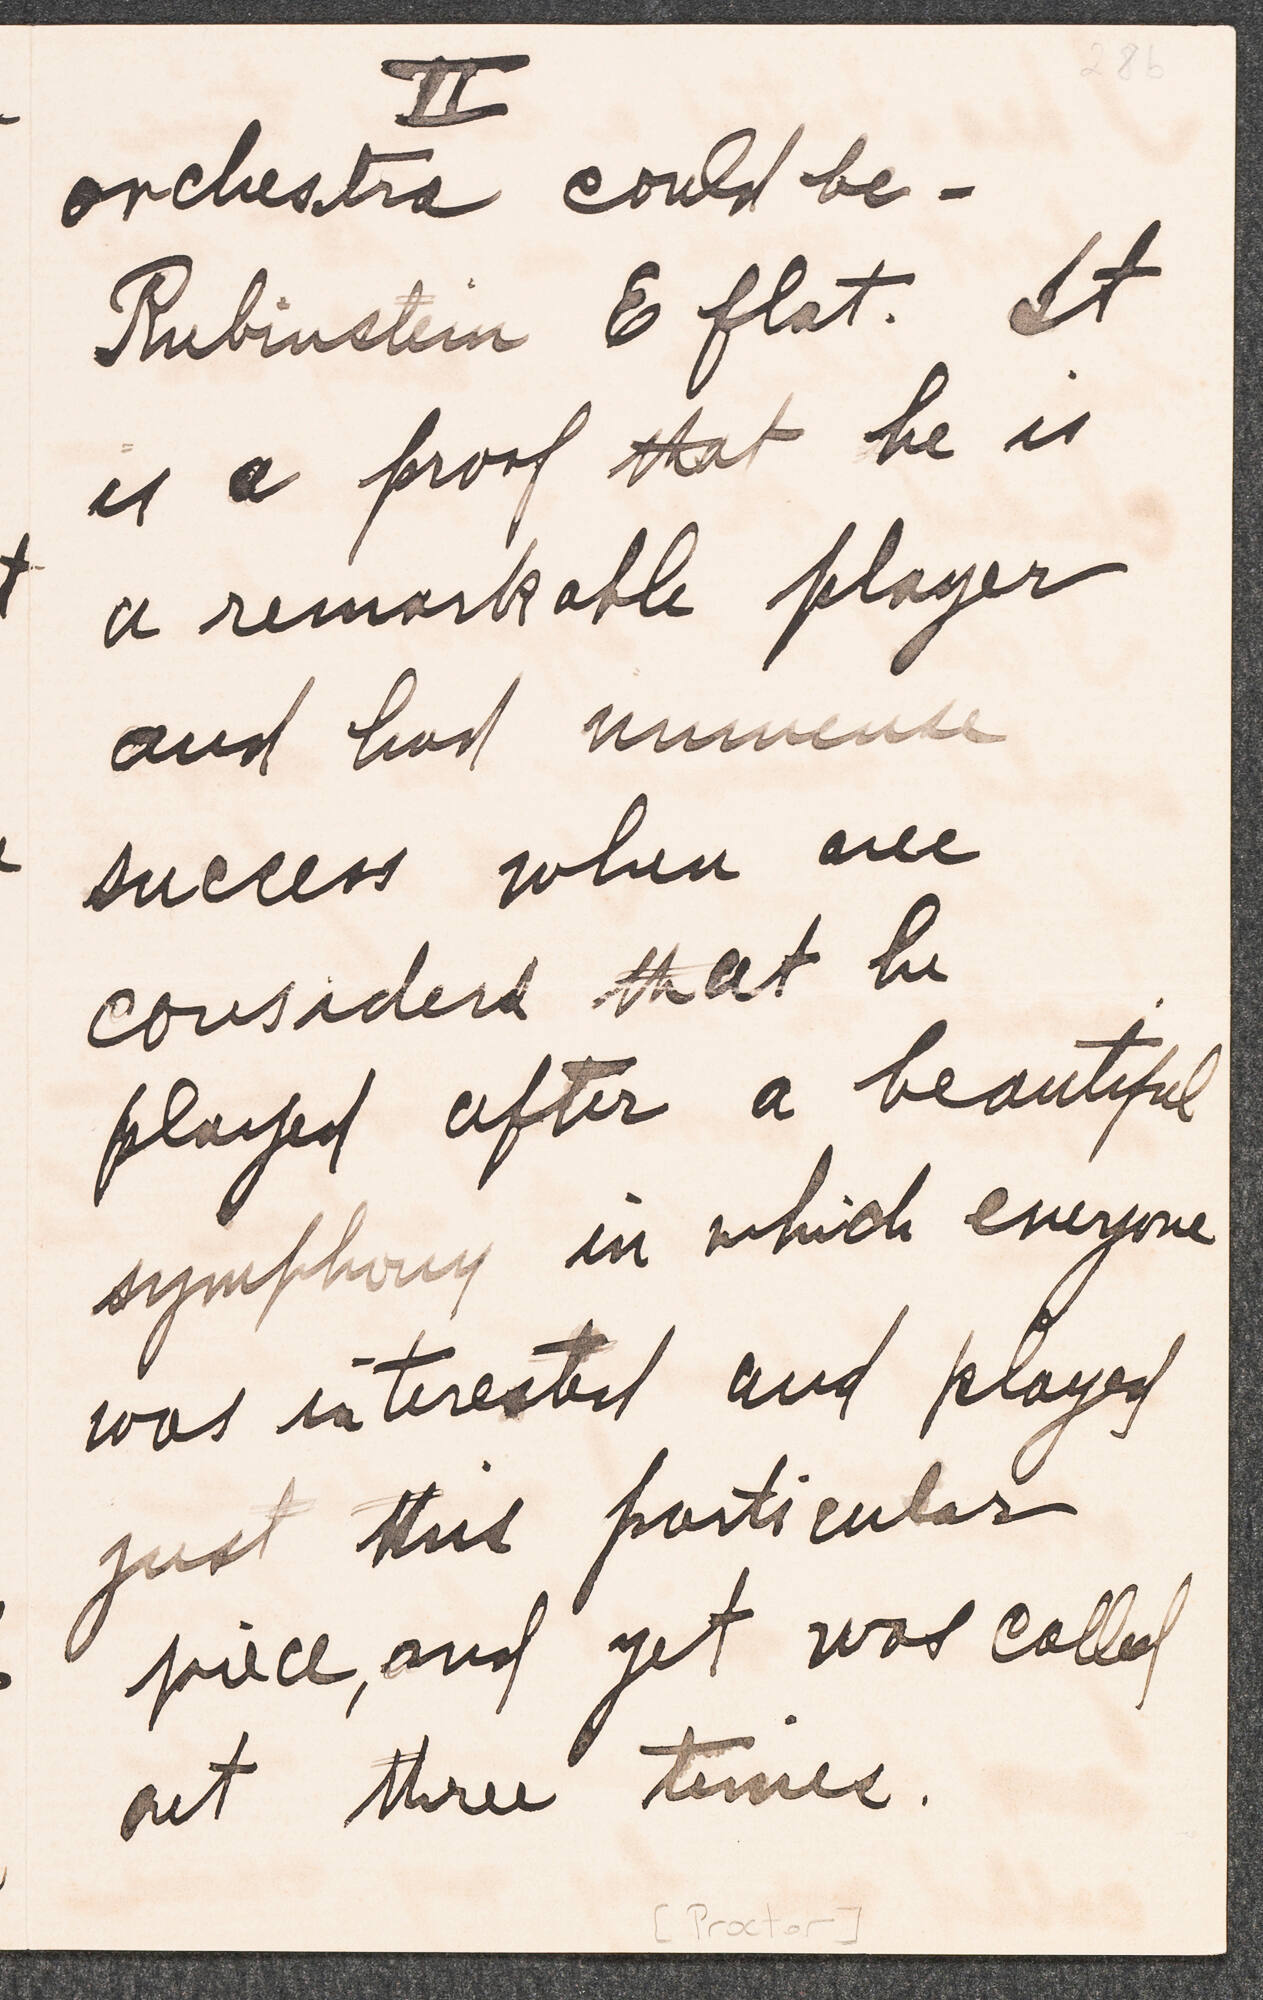 286
II
orchestra could be -
Rubinstein E flat. It
is a proof that he is
a remarkable player
and had immense
success when one
considers that he
played after a beautiful
symphony in which everyone
was interested and played
just this particular
piece, and yet was called
out three times.
[Proctor]